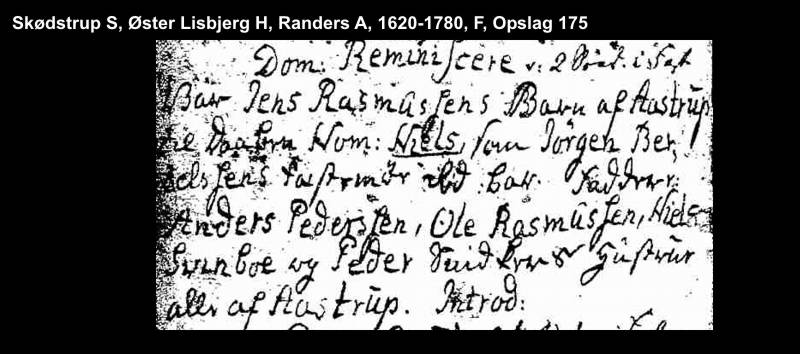 Skødstrup S, Øster Lisbjerg H, Randers A, 1620-1780, F, Opslag 175
Dom: Reminiscere v: 2 i Fast
Bar Jens Rasmussens Barn af Aastrup
til Daaben Nom: Niels, som Jörgen Ber,
telssens bar. Faddere:
Anders Pedersen, Ole Rasmussen, Niels
Svinboe og Peder Hustrue
alle af Aastrup. Introd: